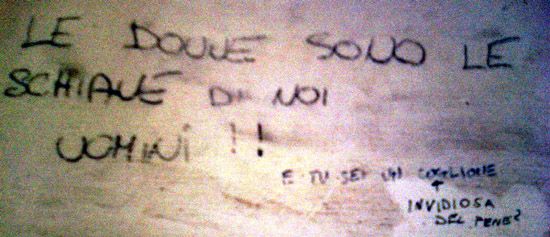 LE DONNE SONO LE
SCHIAVE DI NOI
UOMINI !!
E TU SEI UN COGLIONE
INVIDIOSA
DEL PENE?